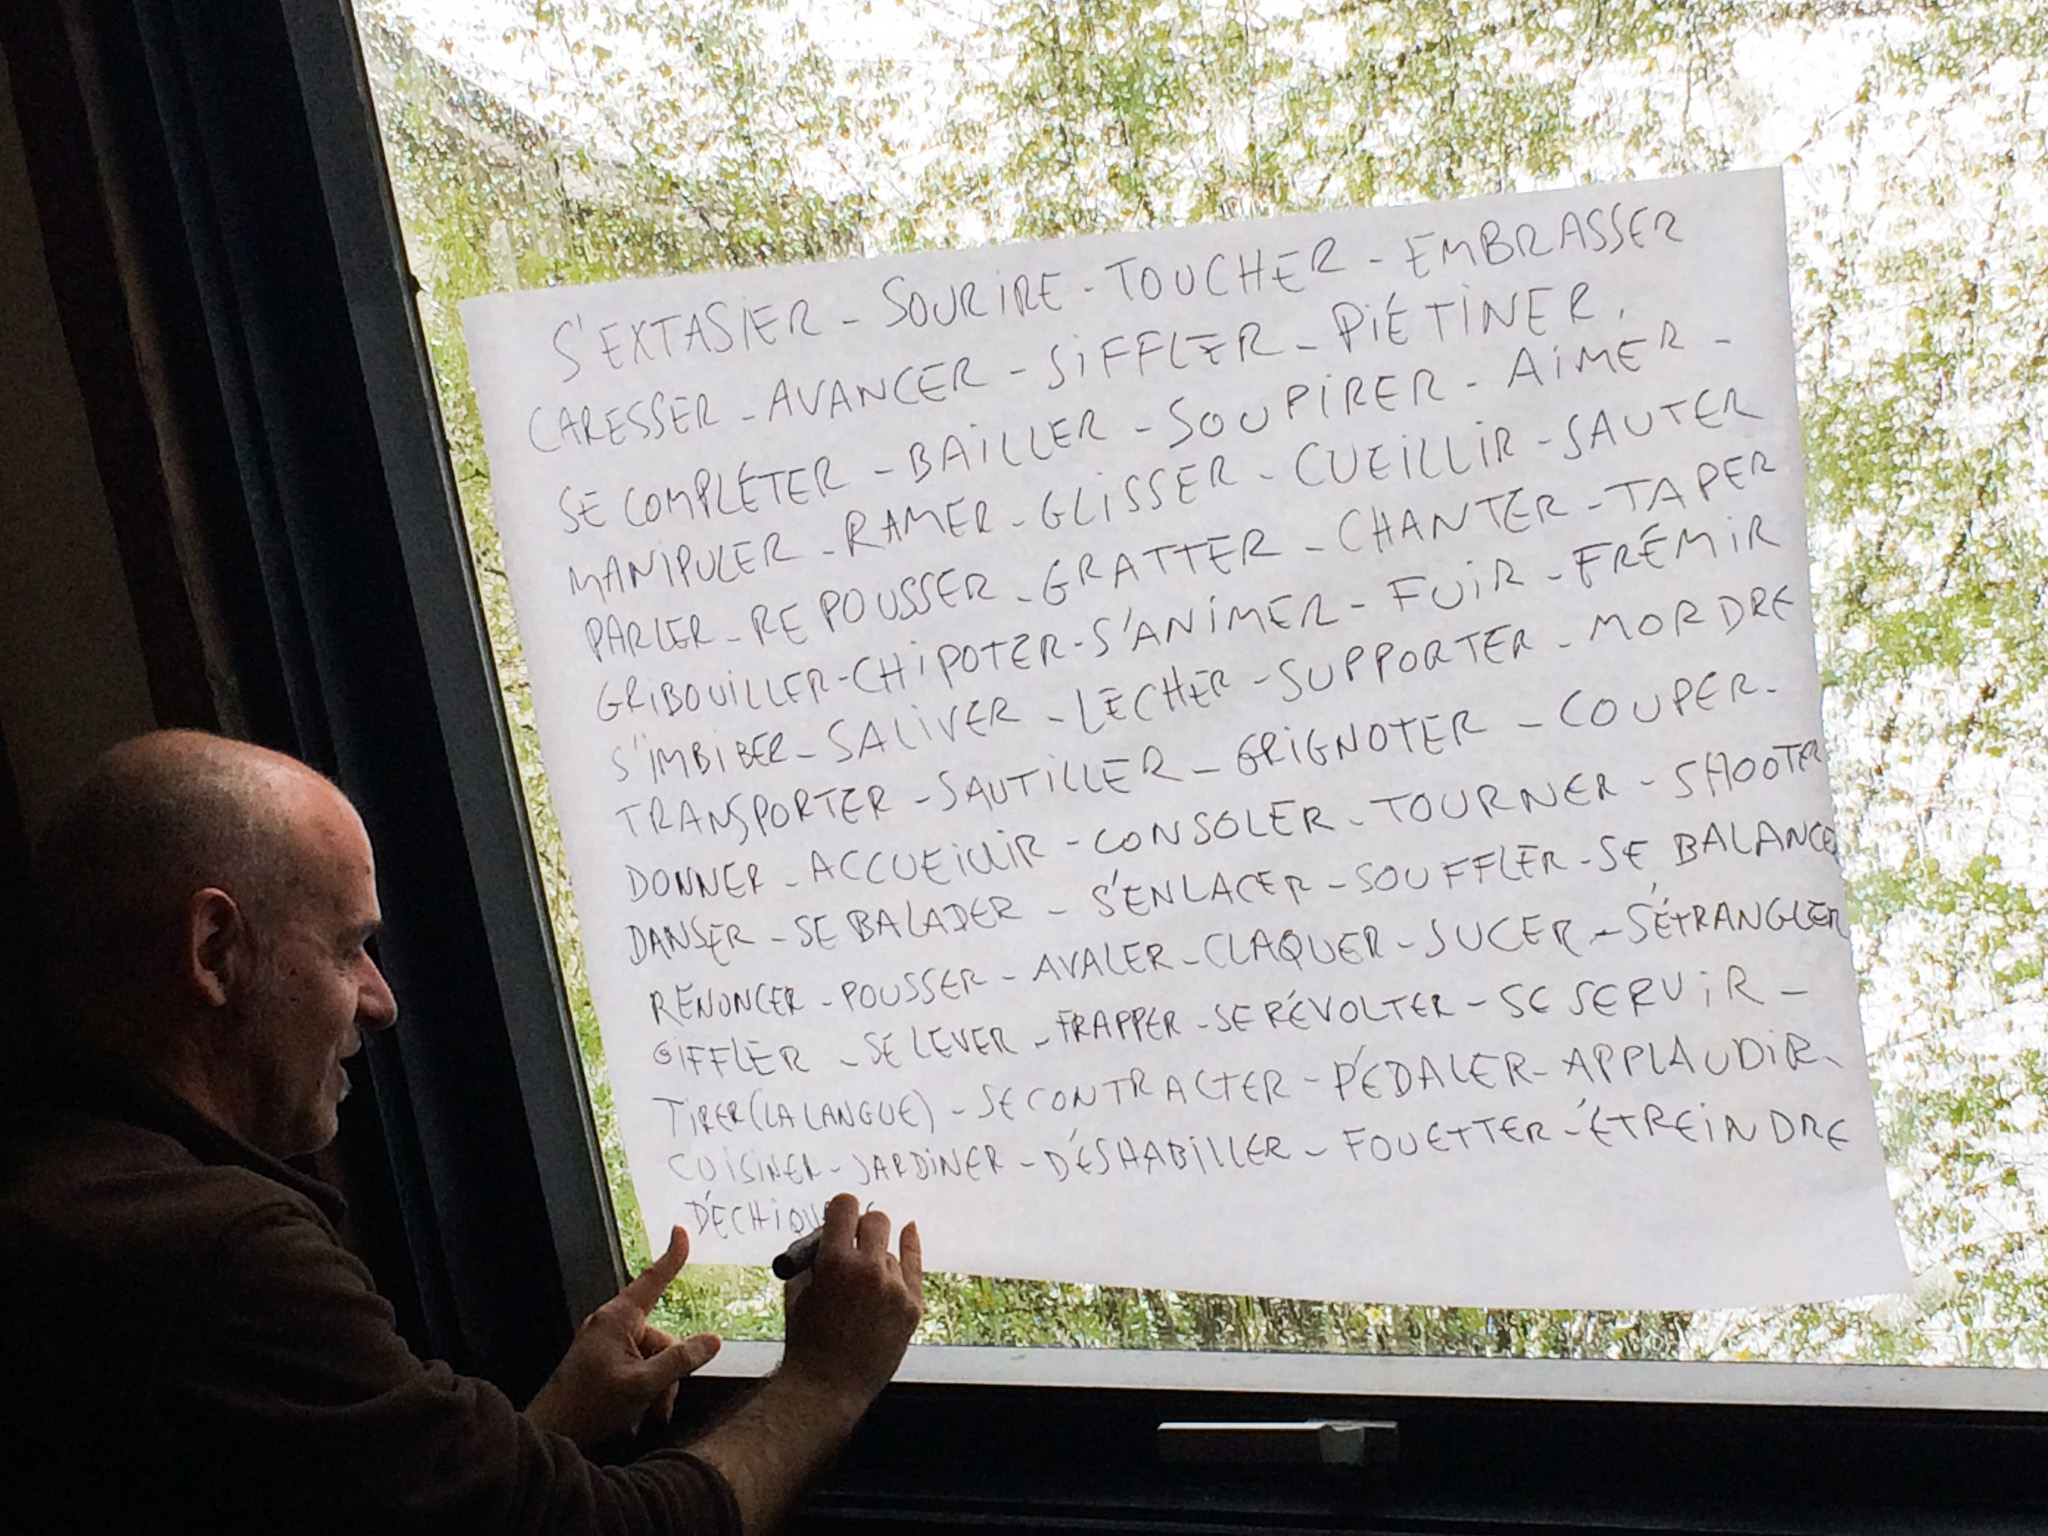 S'EXTASIER - SOURIRE - TOUCHER - EMBRASSER
CARESSER - AVANCER - SIFFLER - PIÉTINER.
SE COMPLÉTER - BAILLER - SOUPIRER - AIMER -
MANIPULER - RAMER - GLISSER - CUEILLIR - SAUTER
PARLER - REPOUSSER - GRATTER - CHANTER - TAPER
GRIBOUILLER - CHIPOTER - S'ANIMER - FUIR - FRÉMIR
S'IMBIBER - SALIVER - LÉCHER - SUPPORTER - MORDRE
TRANSPORTER - SAUTILLER - GRIGNOTER - COUPER.
DONNER - ACCUEILLIR - CONSOLER - TOURNER - SHOOTER
DANSER - SE BALADER - S'ENLACER - SOUFFLER - SE BALANCER
RENONCER - POUSSER - AVALER - CLAQUER - SUCER - S'ÉTRANGLER
GIFFLER - SE LEVER - FRAPPER - SE RÉVOLTER - SE SERVIR -
TIRER (LA LANGUE) - SE CONTRACTER - PÉDALER - APPLAUDIR
CUISINER - JARDINER - DÉSHABILLER - FOUETTER - ÉTREINDRE